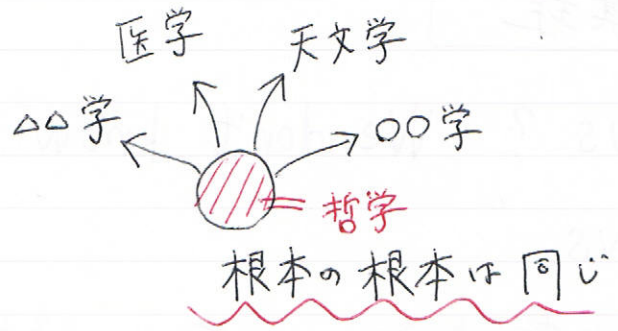 医学 天文学
△△学 ○○学
= 哲学
根本の根本は同じ